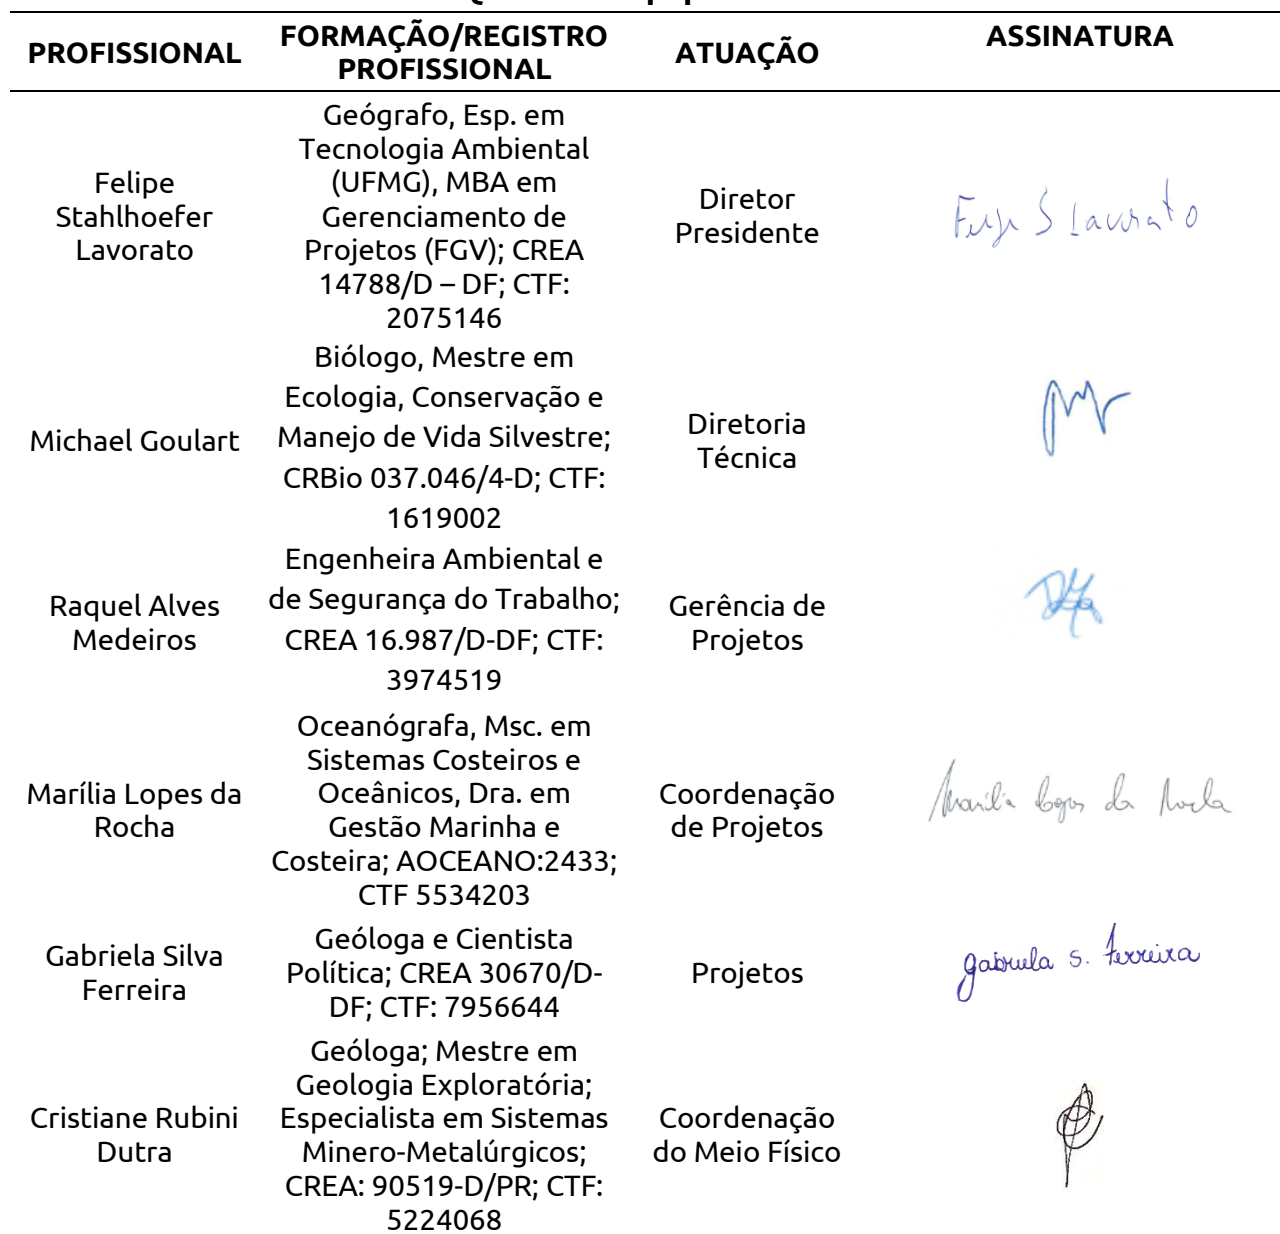 PROFISSIONAL
FORMAÇÃO/REGISTRO
PROFISSIONAL
ATUAÇÃO
ASSINATURA
Felipe
Stahlhoefer
Lavorato
Geógrafo, Esp. em
Tecnologia Ambiental
(UFMG), MBA em
Gerenciamento de
Projetos (FGV); CREA
14788/D – DF; CTF:
2075146
Diretor
Presidente
Michael Goulart
Biólogo, Mestre em
Ecologia, Conservação e
Manejo de Vida Silvestre;
CRBio 037.046/4-D; CTF:
1619002
Diretoria
Técnica
Raquel Alves
Medeiros
Engenheira Ambiental e
de Segurança do Trabalho;
CREA 16.987/D-DF; CTF:
3974519
Gerência de
Projetos
Marília Lopes da
Rocha
Oceanógrafa, Msc. em
Sistemas Costeiros e
Oceânicos, Dra. em
Gestão Marinha e
Costeira; AOCEANO:2433;
CTF 5534203
Coordenação
de Projetos
Marília Lopes da Rocha
Gabriela Silva
Ferreira
Geóloga e Cientista
Política; CREA 30670/D-
DF; CTF: 7956644
Projetos
Gabriela S. Ferreira
Cristiane Rubini
Dutra
Geóloga; Mestre em
Geologia Exploratória;
Especialista em Sistemas
Minero-Metalúrgicos;
CREA: 90519-D/PR; CTF:
5224068
Coordenação
do Meio Físico